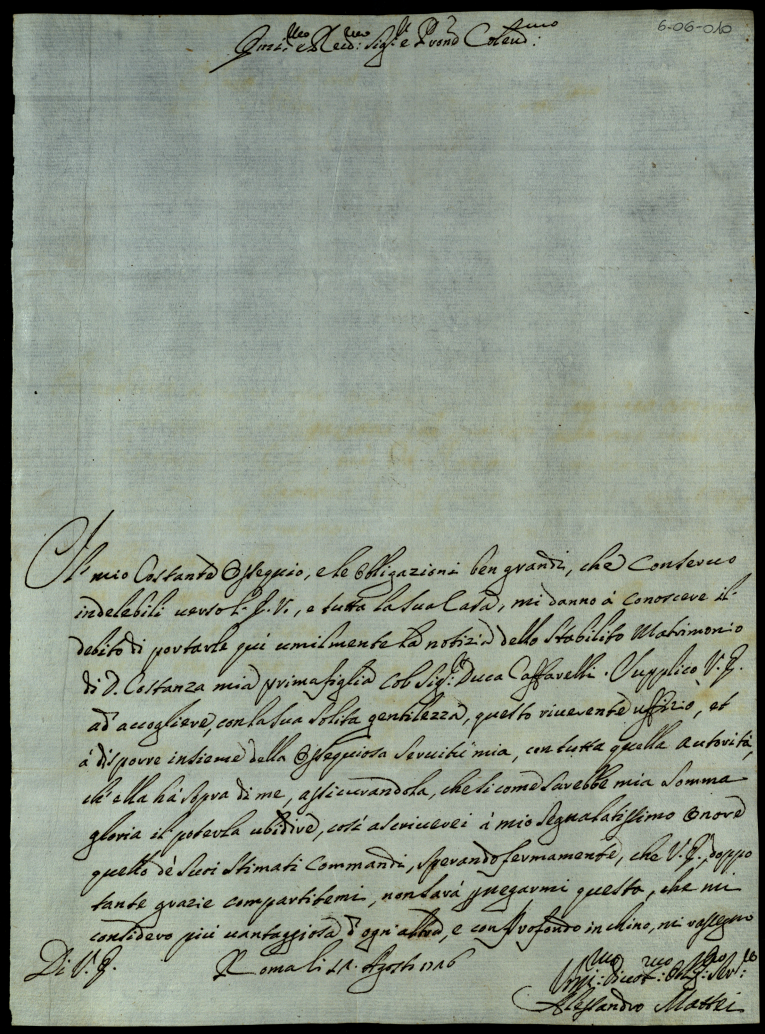 6-06-010
Em.mo e Re.mo Sig.r e P.rone Colend.mo
Il mio Costante Ossequio, e le obligazioni ben grandi, che Conseruo
indelebili uerso l'E.V., e tutta la sua Casa, mi danno à conoscere il
debito di portarle qui umilmente la notizia dello stabilito Matrimonio
di D. Costanza mia prima figlia col Sig.r Duca Caffarelli. Supplico V.E.
ad'accogliere, con la sua solita gentilezza, questo riuerente uffizio, et
à disporre insieme della Ossequiosa Seruitù mia, con tutta quella autorità,
ch'ella hà sopra di me, assicurandola, che si come sarebbe mia somma
gloria il poterla ubidire, così ascriuerei à mio segnalatissimo onore
quello de Suoi Stimati Commandi, sperando fermamente, che V.E., doppo
tante grazie compartitemi, non sarà per negarmi questa, che mi
considero più uantaggiosa d'ogn'altra, e con profondo inchino, mi rassegno
Di V.E. Roma li Agosto
Um.mo Deuot.mo Oblig.mo Ser.re
Alessandro Mattei